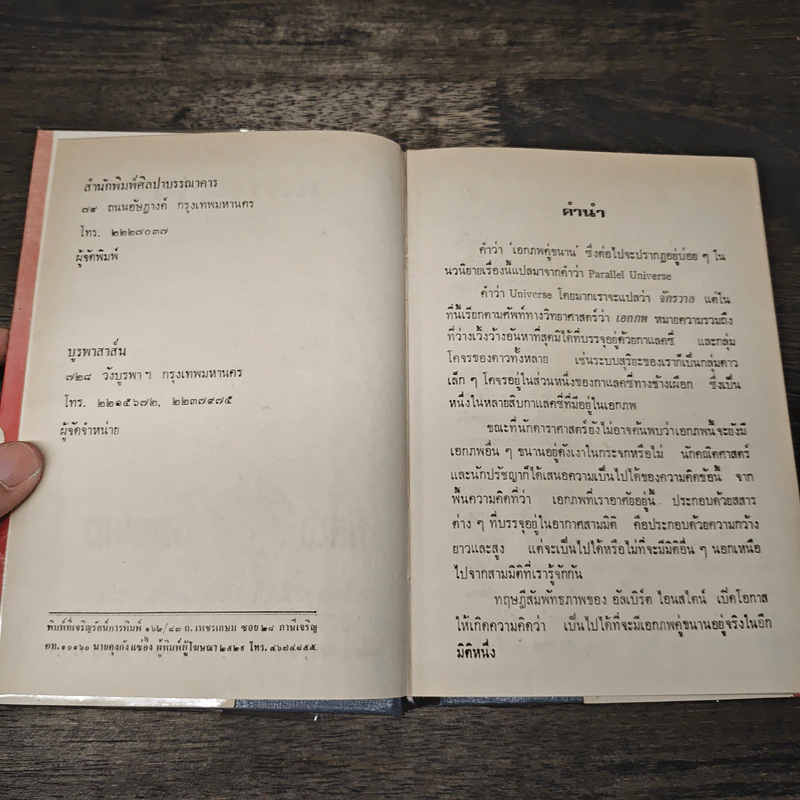 สำนักพิมพ์ศิลปาบรรณาคาร
๗๙ ถนนอัษฎางค์ กรุงเทพมหานคร
โทร. ๒๒๒๗๐๓๗
ผู้จัดพิมพ์
บูรพาสาส์น
๗๒๘ วังบูรพา ฯ กรุงเทพมหานคร
โทร. ๒๒๑๕๖๗๒, ๒๒๓๗๙๗๕
ผู้จัดจำหน่าย
พิมพ์ที่เจริญรัตน์การพิมพ์ ๑๖๒/๘๓ ถ. เพชรเกษม ซอย ๒๘ ภาษีเจริญ
กท. ๑๐๑๖๐ นายคุงกัง แซ่อึ้ง ผู้พิมพ์ผู้โฆษณา ๒๕๒๙ โทร. ๔๖๗๔๘๕๕
คำนำ
คำว่า 'เอกภพคู่ขนาน' ซึ่งต่อไปจะปรากฏอยู่บ่อย ๆ ใน
นวนิยายเรื่องนี้แปลมาจากคำว่า Parallel Universe
คำว่า Universe โดยมากเราจะแปลว่า จักรวาล แต่ใน
ที่นี้เรียกตามศัพท์ทางวิทยาศาสตร์ว่า เอกภพ หมายความรวมถึง
ที่ว่างเวิ้งว้างอันหาที่สุดมิได้ที่บรรจุอยู่ด้วยกาแลคซี่ และกลุ่ม
โคจรของดาวทั้งหลาย เช่นระบบสุริยะของเราก็เป็นกลุ่มดาว
เล็ก ๆ โคจรอยู่ในส่วนหนึ่งของกาแลคซี่ทางช้างเผือก ซึ่งเป็น
หนึ่งในหลายสิบกาแลคซี่ที่มีอยู่ในเอกภพ
ขณะที่นักดาราศาสตร์ยังไม่อาจค้นพบว่าเอกภพนี้จะยังมี
เอกภพอื่น ๆ ขนานอยู่ดังเงาในกระจกหรือไม่ นักคณิตศาสตร์
และนักปรัชญาก็ได้เสนอความเป็นไปได้ของความคิดข้อนี้ จาก
พื้นความคิดที่ว่า เอกภพที่เราอาศัยอยู่นี้ ประกอบด้วยสสาร
ต่าง ๆ ที่บรรจุอยู่ในอากาศสามมิติ คือประกอบด้วยความกว้าง
ยาวและสูง แต่จะเป็นไปได้หรือไม่ที่จะมีมิติอื่น ๆ นอกเหนือ
ไปจากสามมิติที่เรารู้จักกัน
ทฤษฎีสัมพัทธภาพของ อัลเบิร์ต ไอนสไตน์ เปิดโอกาส
ให้เกิดความคิดว่า เป็นไปได้ที่จะมีเอกภพคู่ขนานอยู่จริงในอีก
มิติหนึ่ง